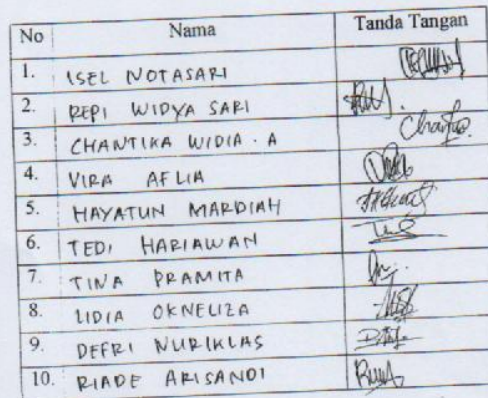 No Nama Tanda Tangan
1. ISEL NOTASARI
2. REPI WIDYA SARI
3. CHANTIKA WIDIA . A
4. VIRA AFLIA
5. HAYATUN MARDIAH
6. TEDI HARIAWAN
7. TINA PRAMITA
8. LIDIA OKNELIZA
9. DEFRI NURIKLAS
10. RIADE ARISANDI